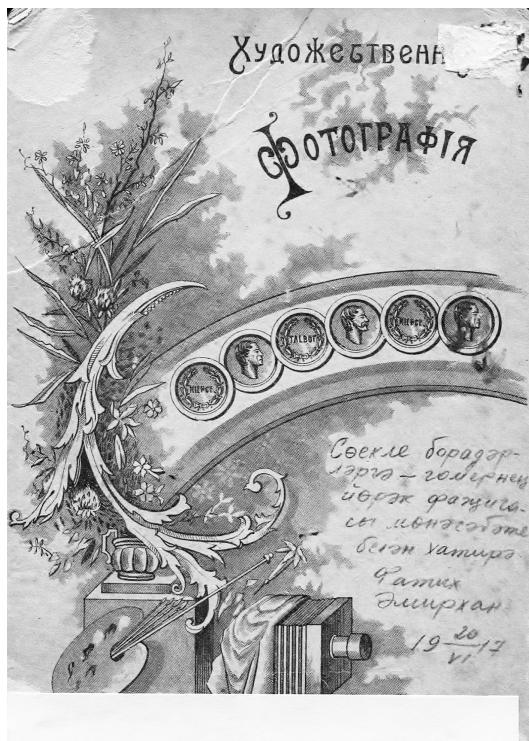 Художественн
Фотографія
НІЕРСЕ.
TALBOT
НІЕРСЕ.
Сөекле борадәр-
ләргә — гомернең
йөрәк фаҗига-
сы мөнәсәбәте
белән хатирә.
Фатих
Әмирхан
19 20/VI 17